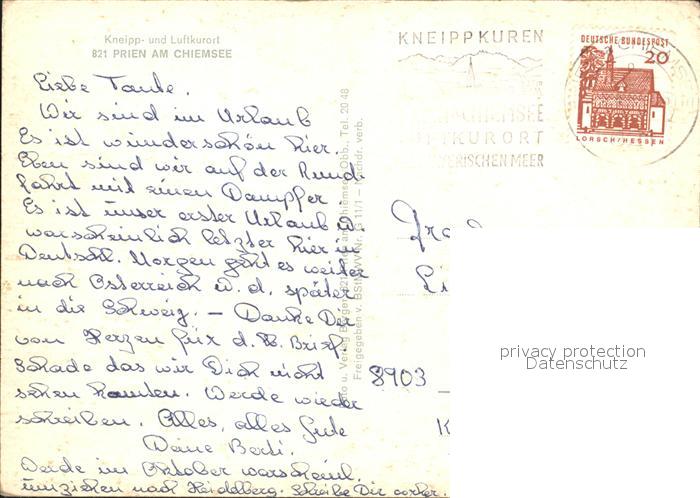 Kneipp- und Luftkurort
821 PRIEN AM CHIEMSEE
KNEIPPKUREN
CHIEMSEE
LUFTKURORT
BAYERISCHEN MEER
DEUTSCHE BUNDESPOST
20
LORSCH/HESSEN
Liebe Tante.
Wir sind im Urlaub
Es ist wunderschön hier.
Eben sind wir auf der Rund
fahrt mit einen Dampfer.
Es ist unser erster Urlaub u.
warscheinlich letzter hier in
Deutschl. Morgen geht es weiter
nach Österreich u. d. später
in die Schweiz. - Danke Dir
von Herzen für d. lb. Brief.
Schade das wir Dich nicht
sehen konnten. Werde wieder
schreiben. Alles, alles Gute
Deine Berti.
Werde im Oktober warscheinl.
umziehen nach Heidelberg. Schreibe Dir vorher.
Foto u. Verlag Berger, 821 Prien am Chiemsee/Obb., Tel. 20 48
Freigegeben v. BStMWV Nr. G 11/1 - Nachdr. verb.
8903
privacy protection
Datenschutz